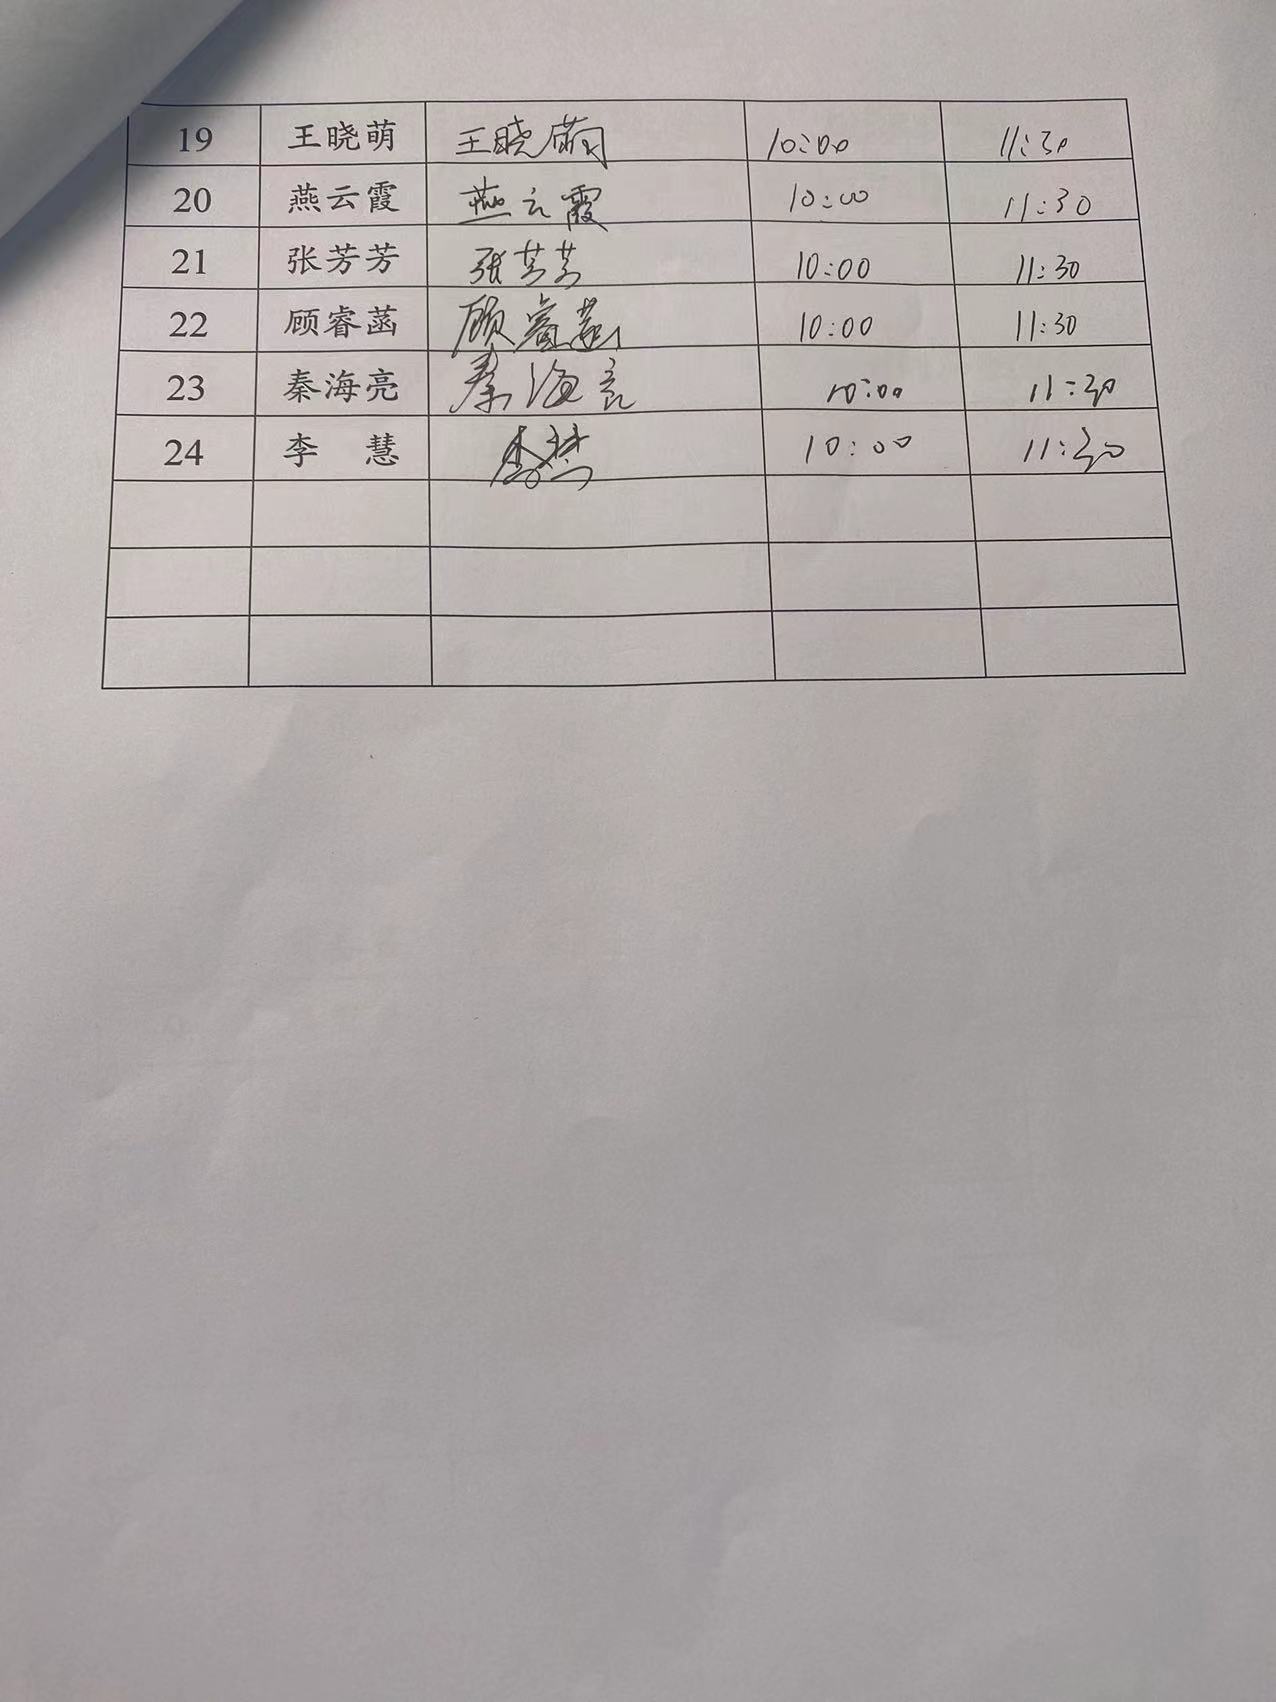 19 王晓萌 王晓萌 10:00 11:30
20 燕云霞 燕云霞 10:00 11:30
21 张芳芳 张芳芳 10:00 11:30
22 顾睿菡 顾睿菡 10:00 11:30
23 秦海亮 秦海亮 10:00 11:30
24 李 慧 李慧 10:00 11:30